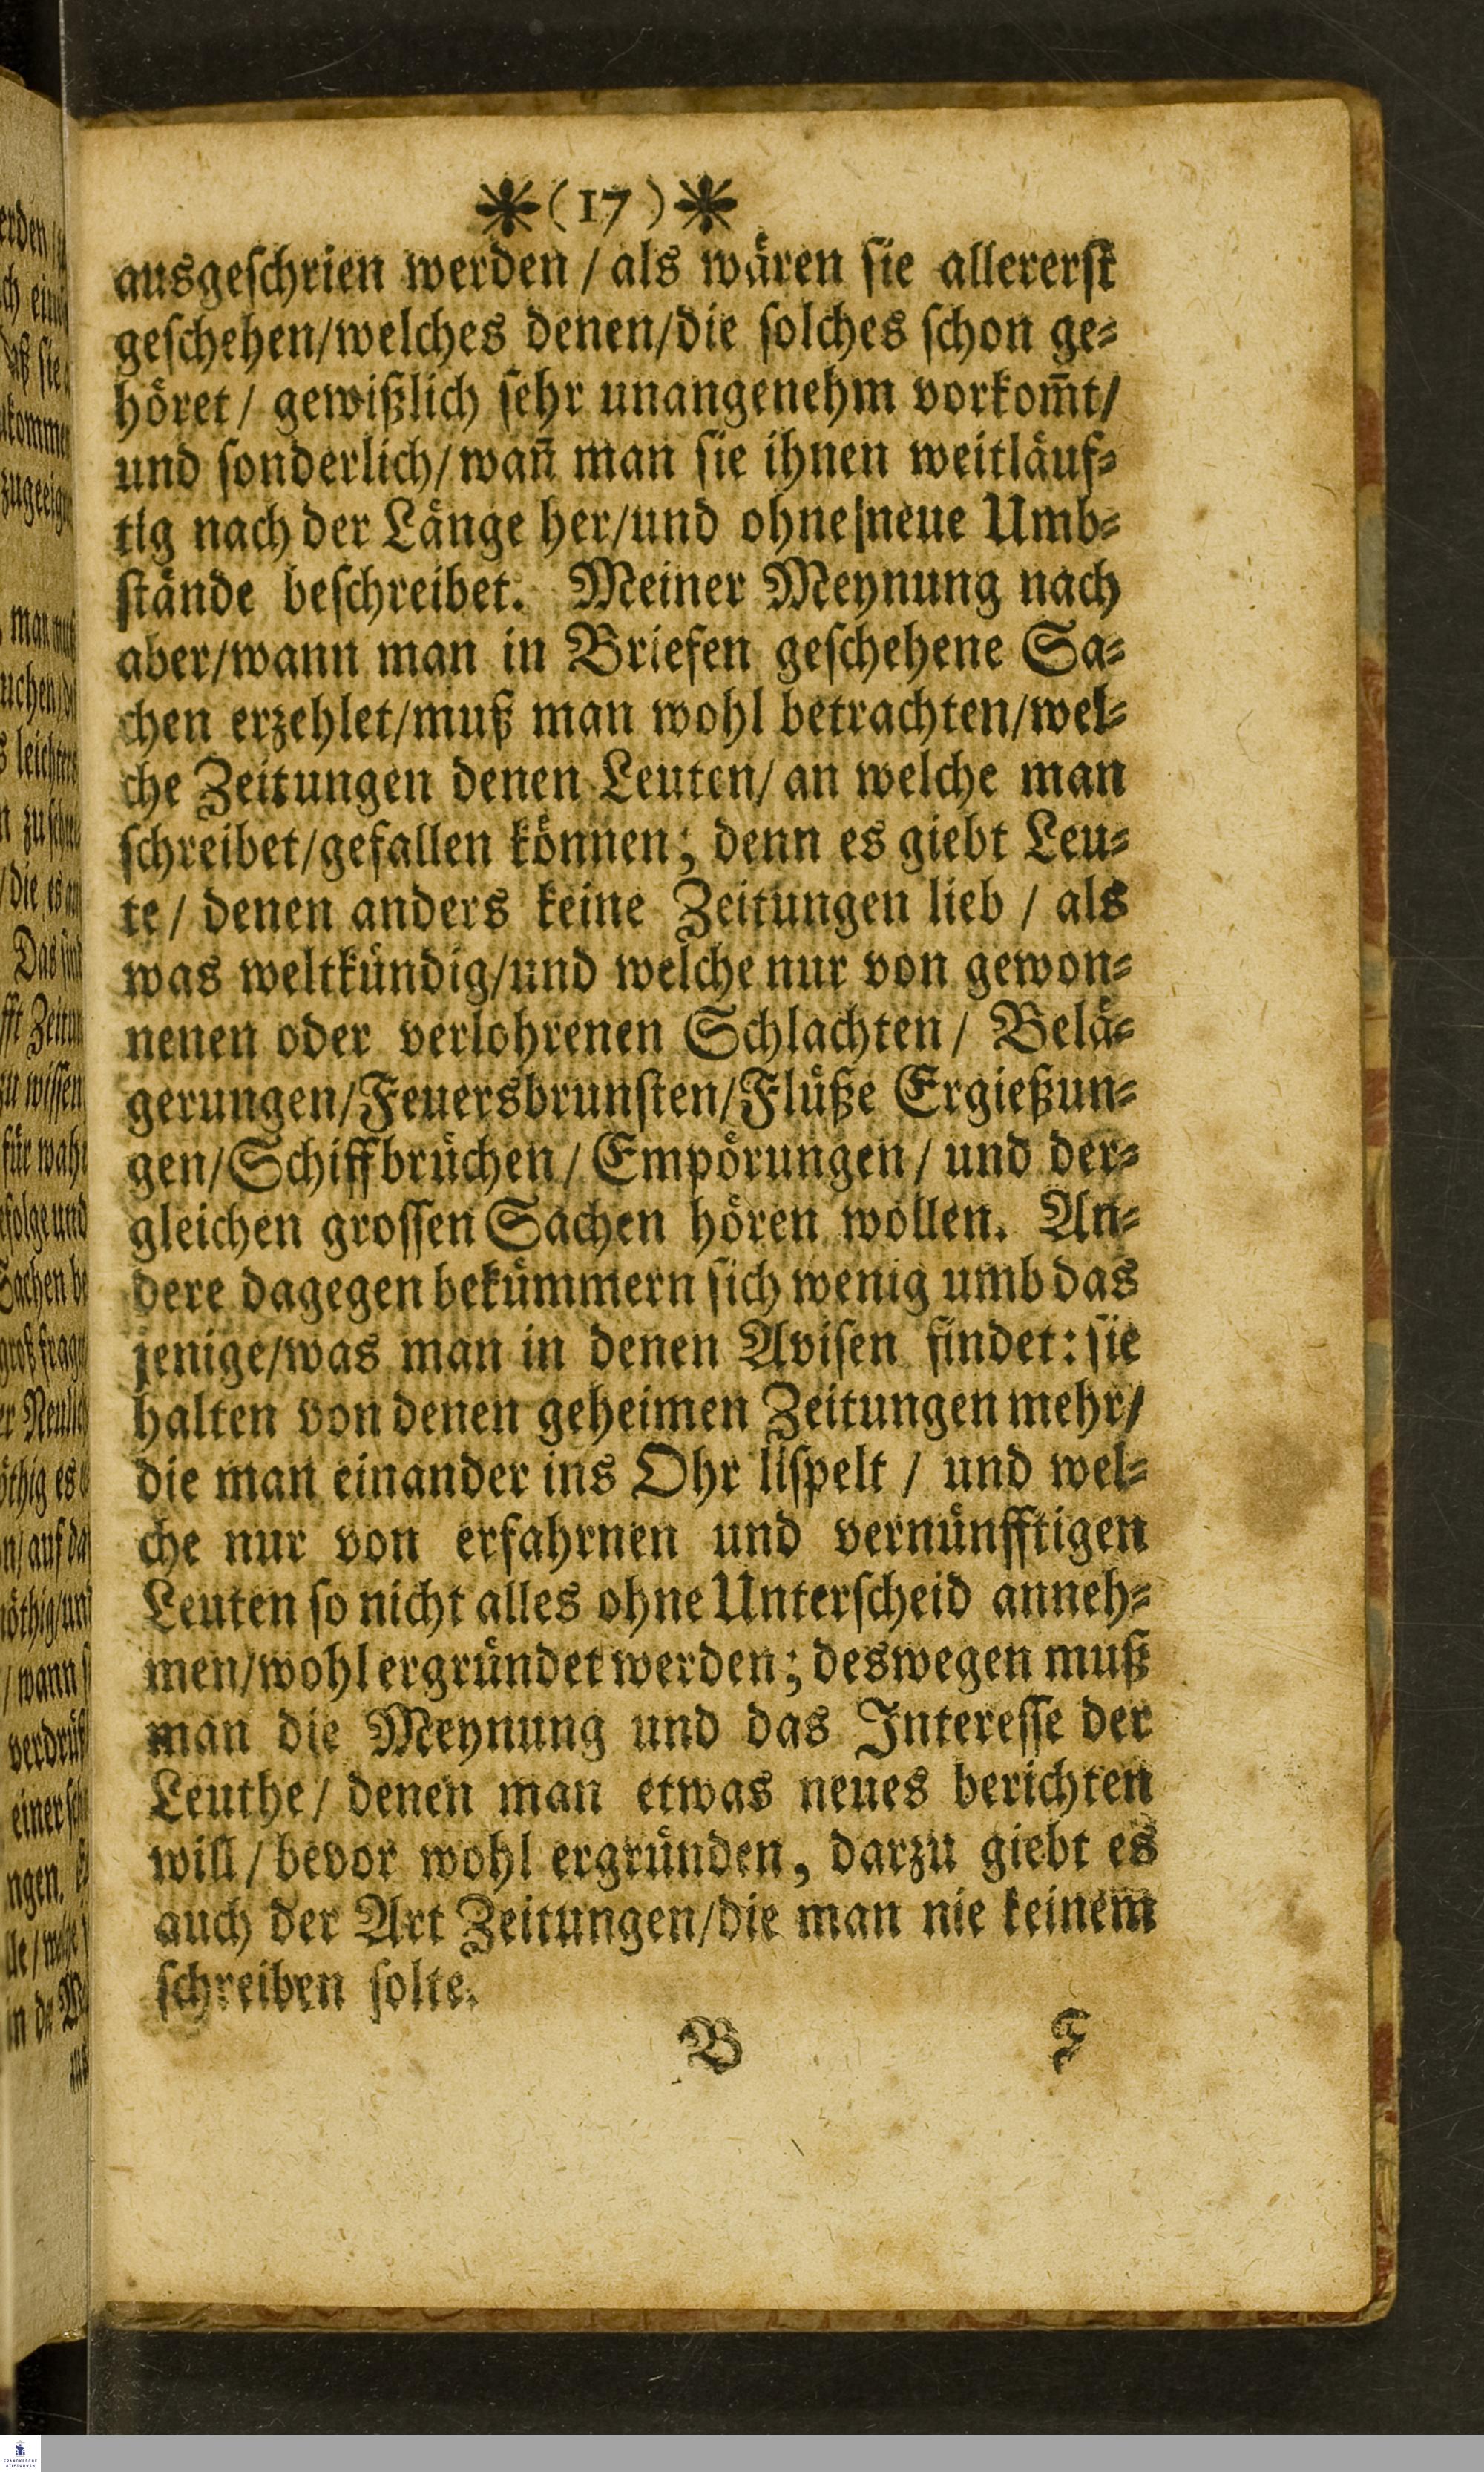 *(17)*
ausgeschrien werden / als wären sie allererst
geschehen/welches denen/die solches schon ge=
höret / gewißlich sehr unangenehm vorkom̃t/
und sonderlich/wañ man sie ihnen weitläuf=
tig nach der Länge her/und ohne neue Umb=
stände beschreibet. Meiner Meynung nach
aber/wann man in Briefen geschehene Sa=
chen erzehlet/muß man wohl betrachten/wel=
che Zeitungen denen Leuten/ an welche man
schreibet/gefallen können; denn es giebt Leu=
te / denen anders keine Zeitungen lieb / als
was weltkündig/und welche nur von gewon=
nenen oder verlohrenen Schlachten / Belä=
gerungen/Feuersbrunsten/Flüße Ergießun=
gen/Schiffbrüchen / Empörungen / und der=
gleichen grossen Sachen hören wollen. An=
dere dagegen bekümmern sich wenig umb das
jenige/was man in denen Avisen findet: sie
halten von denen geheimen Zeitungen mehr/
die man einander ins Ohr lispelt / und wel=
che nur von erfahrnen und vernünfftigen
Leuten so nicht alles ohne Unterscheid anneh=
men/wohl ergründet werden; deswegen muß
man die Meynung und das Interesse der
Leuthe / denen man etwas neues berichten
will / bevor wohl ergründen, darzu giebt es
auch der Art Zeitungen/die man nie keinem
schreiben solte.
B